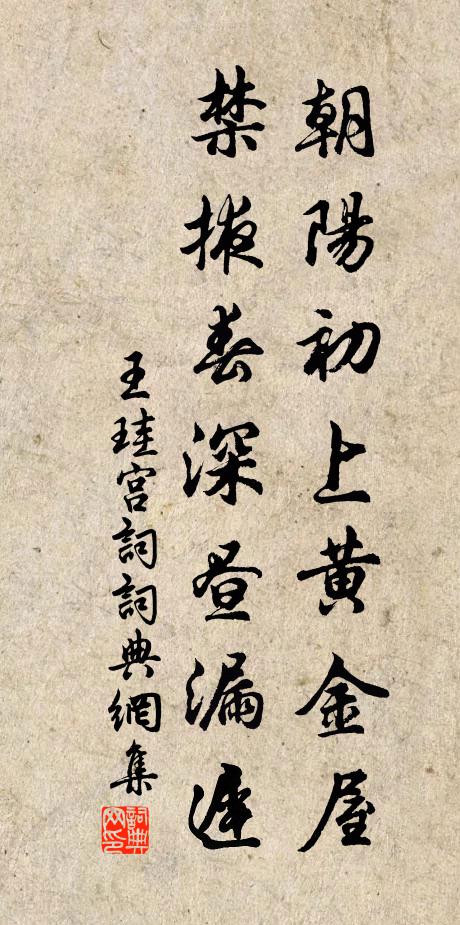 朝陽初上黃金屋
禁掖春深晝漏遲
王珪宮詞詞典網集
詞典網印